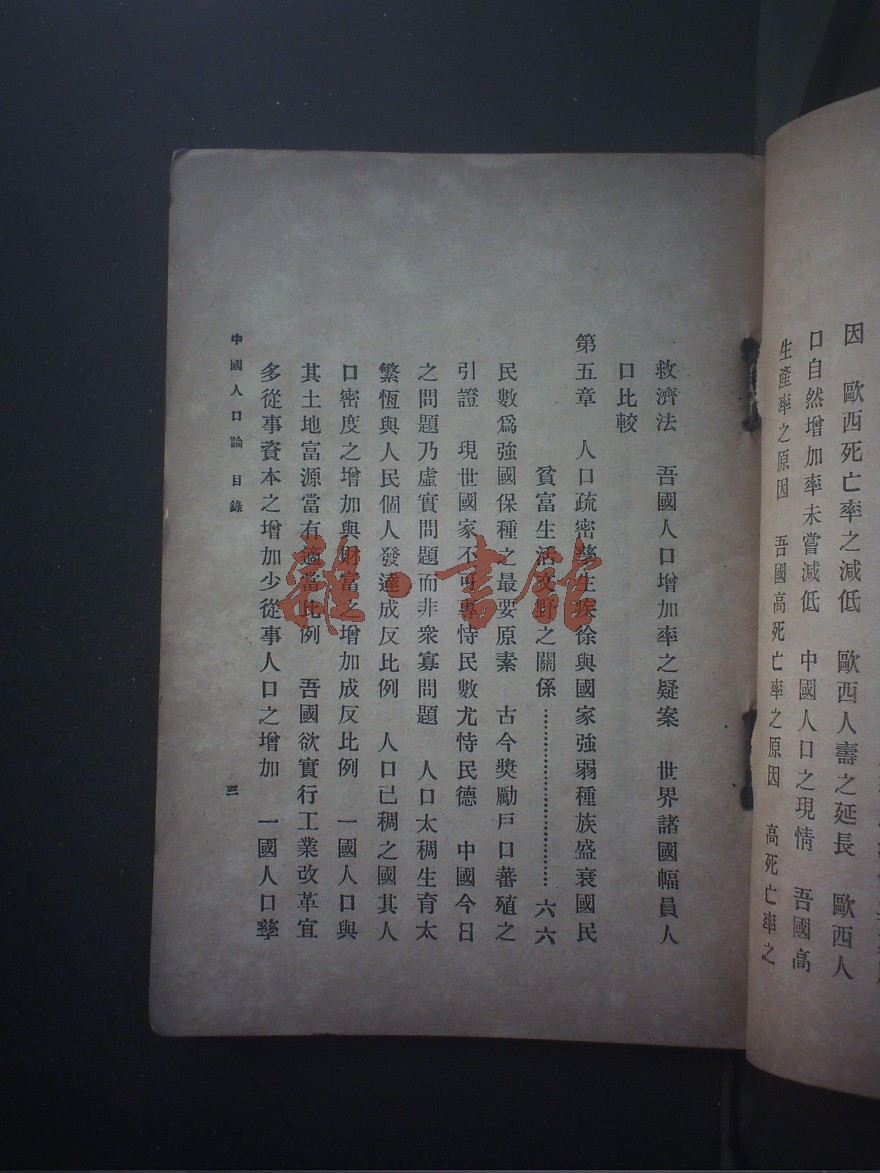 因　歐西死亡率之減低　歐西人壽之延長　歐西人
口自然增加率未嘗減低　中國人口之現情　吾國高
生產率之原因　吾國高死亡率之原因　高死亡率之
救濟法　吾國人口增加率之疑案　世界諸國幅員人
口比較
第五章　人口疏密孳生疾徐與國家強弱種族盛衰國民
貧富生活文野之關係…………………六六
民數爲強國保種之最要原素　古今獎勵戶口蕃殖之
引證　現世國家不可專恃民數尤恃民德　中國今日
之問題乃虛實問題而非衆寡問題　人口太稠生育太
繁恆與人民個人發達成反比例　人口已稠之國其人
口密度之增加與財富之增加成反比例　一國人口與
其土地富源當有適當比例　吾國欲實行工業改革宜
多從事資本之增加少從事人口之增加　一國人口孳
中國人口論　目錄　三
雜·書館